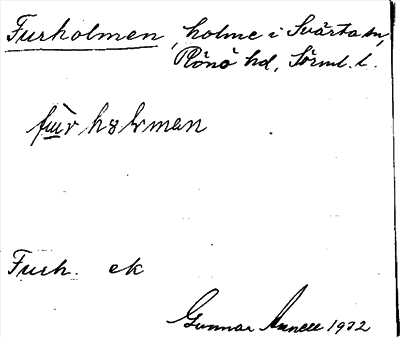 Furholmen, holme i Svärta sn,
Rönö hd, Sörml. l.
Furh. ek
Gunnar Annell 1932